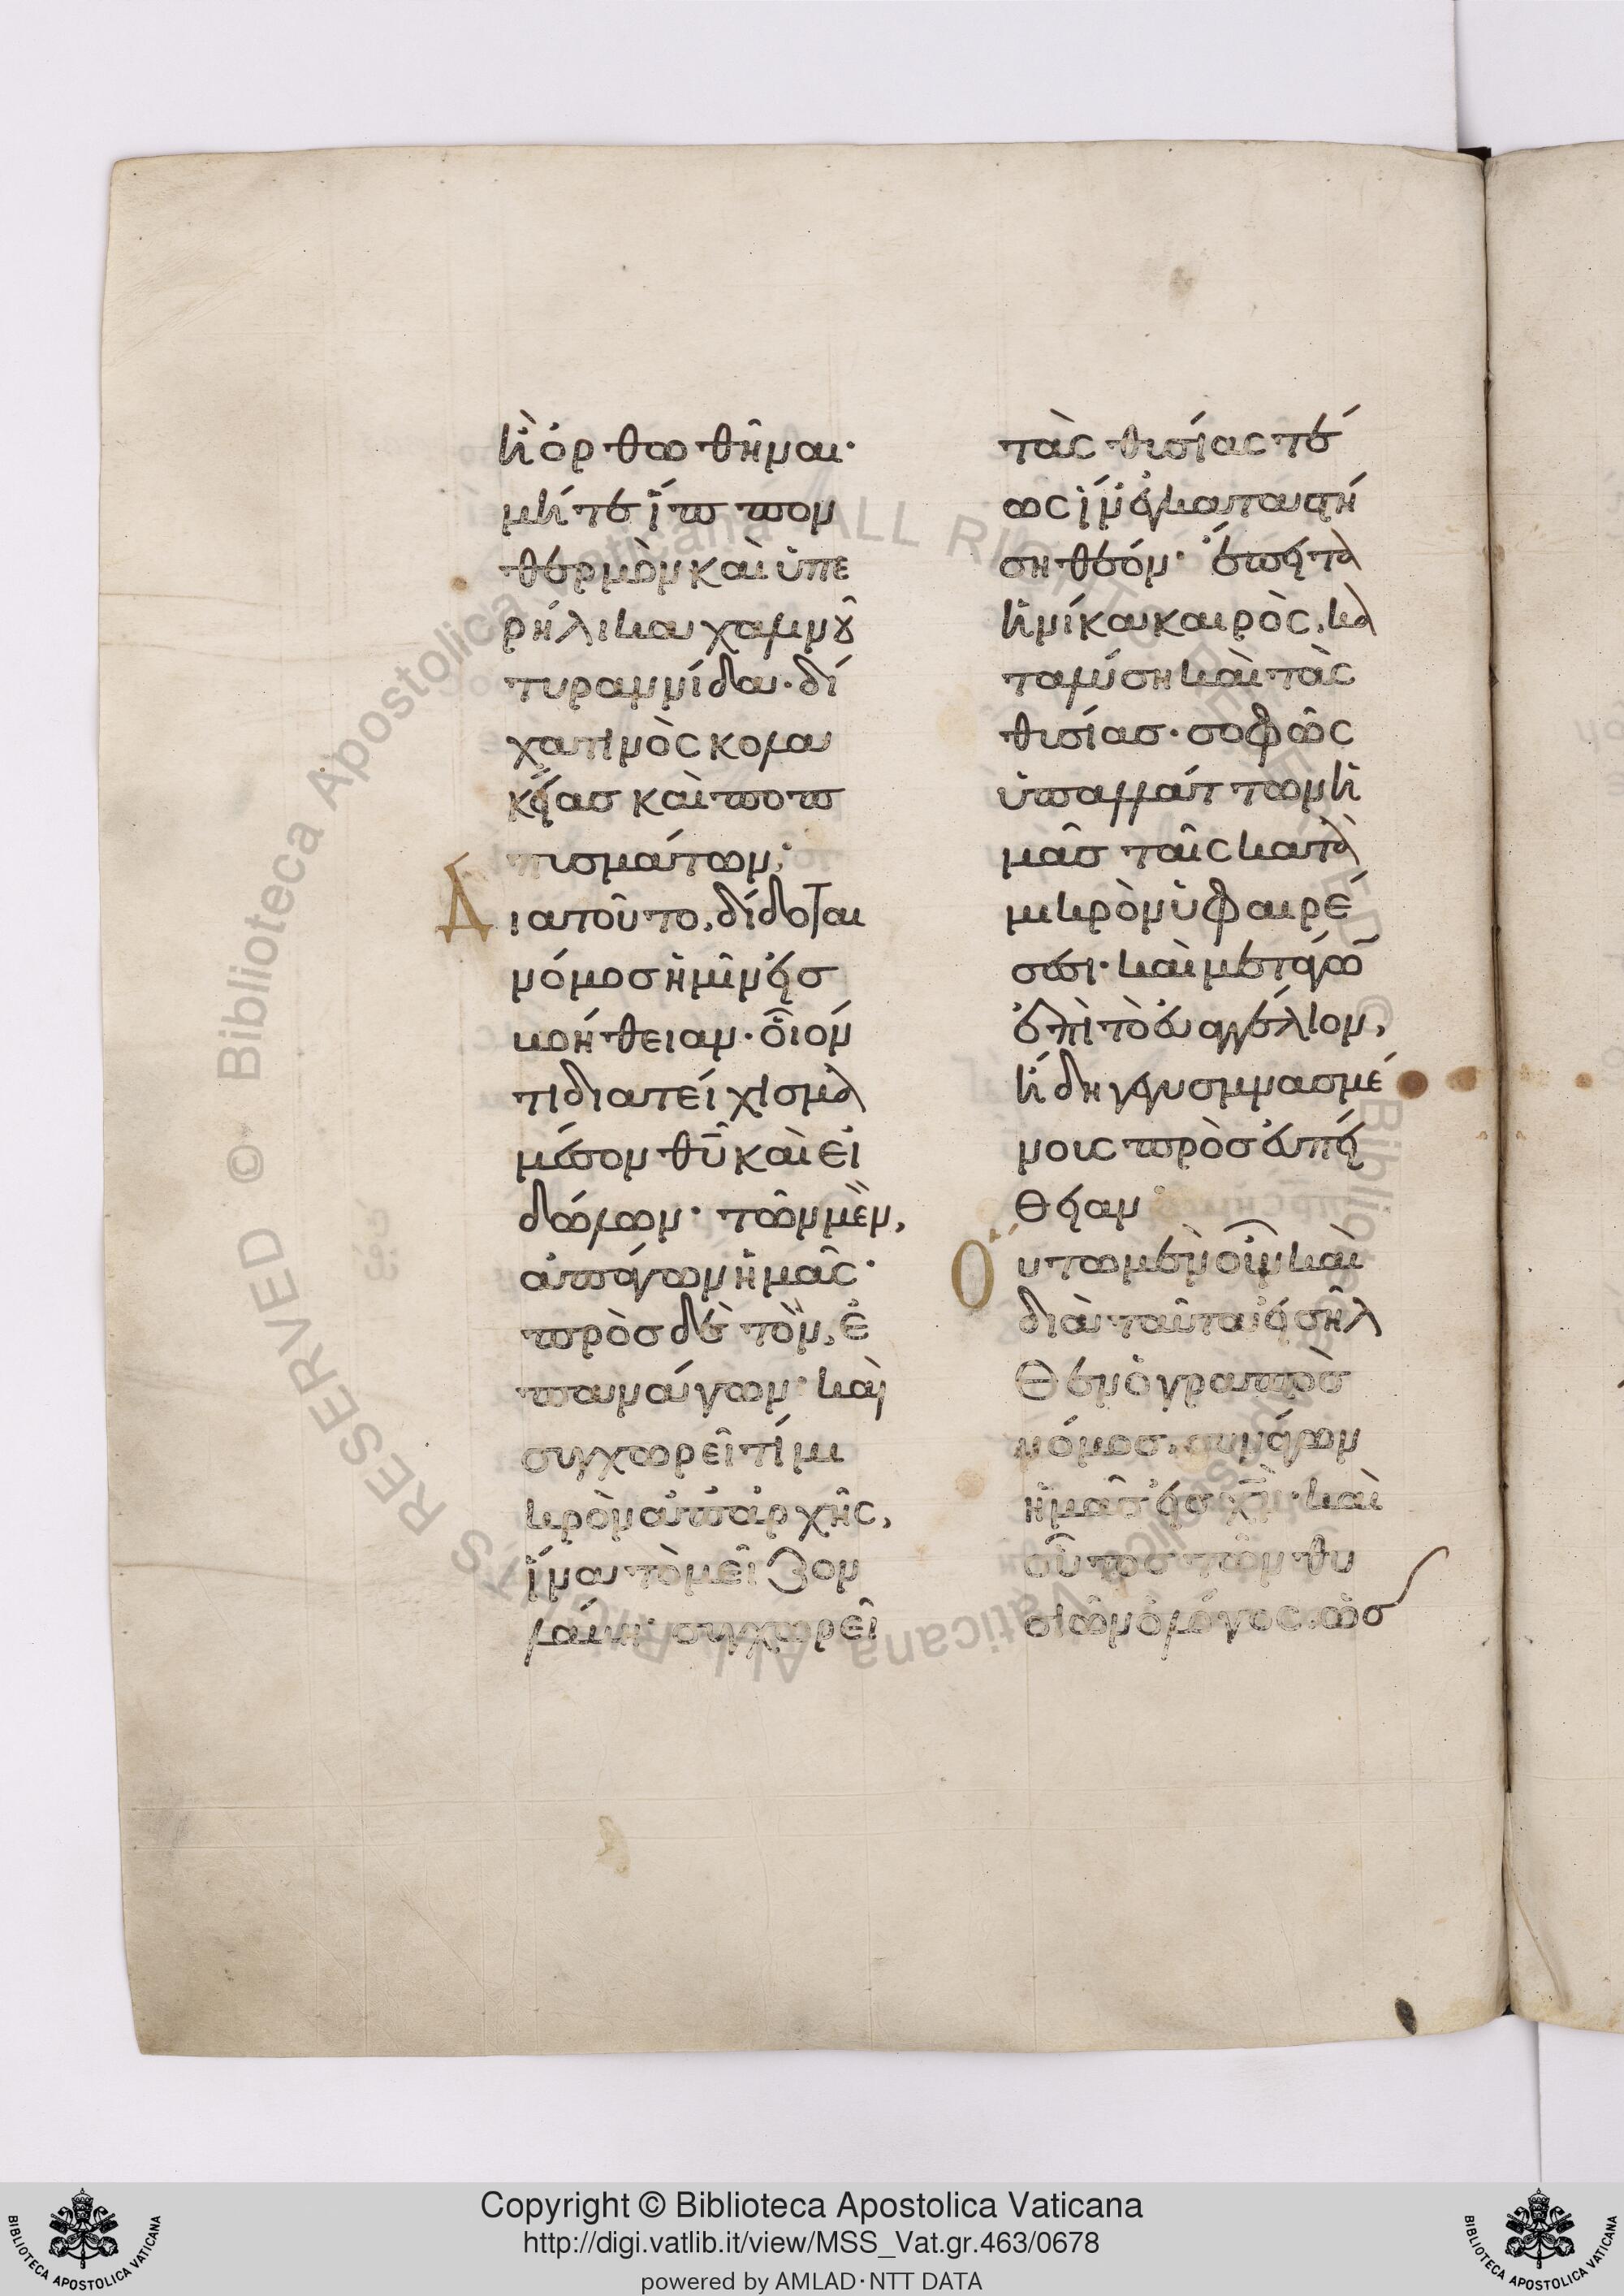 ἢ ὀρθωθῆναι·
μήτε ἵππον
θερμὸν καὶ ὑπε
ρήλικα χαλινῷ
τυραννίδα· δί
χα τινὸς κολα
κείας καὶ ποπ
πυσμάτων;
Διατοῦτο, δίδοται
νόμος ἡμῖν εἰς
βοήθειαν· οἷόν
τι διατείχισμα
μέσον θῦ καὶ εἰ
δώλων· τῶν μὲν,
ἀπάγων ἡμᾶς·
πρὸς δὲ τὸν, ἐ
πανάγων· καὶ
συγχωρεῖ τί μι
κρὸν ἀπαρχῆς,
ἵνα τὸ μεῖζον
λάβη· συγχωρεῖ
τὰς θυσίας τέ
ως ἵν' ἐγκαταστή
ση θεόν· ἔπειτα
ἡνίκα καιρὸς, κα
ταλύση καὶ τὰς
θυσίας· σοφῶς
ὑπαλλάττων ἡ
μᾶς ταῖς κατὰ
μικρὸν ὑφαιρέ
σεσι· καὶ μετάγων
ἐπὶ τὸ εὐαγγέλιον,
ἤδη γεγυμνασμέ
νους πρὸς εὐπεί
θειαν·
Οὕτω μὲν οὖν καὶ
διὰ ταῦτα εἰσῆλ
θεν ὁ γραπτὸς
νόμος, συνάγων
ἡμᾶς εἰς χν· καὶ
οὗτος τῶν θυ
σιῶν ὁ λόγος, ὡς
Copyright © Biblioteca Apostolica Vaticana
http://digi.vatlib.it/view/MSS_Vat.gr.463/0678
powered by AMLAD·NTT DATA
BIBLIOTECA APOSTOLICA VATICANA
BIBLIOTECA APOSTOLICA VATICANA
© Biblioteca Apostolica Vaticana ALL RIGHTS RESERVED